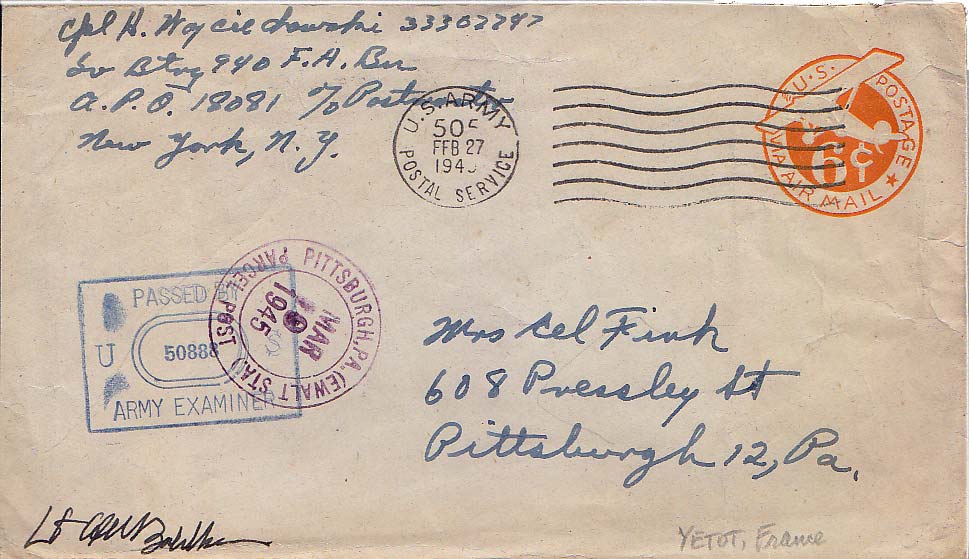 Cpl H. Wojciechowski 33302797
Sv Btry 940 F.A. Bn
A.P.O. 18081 c/o Postmaster
New York, N.Y.
U.S. ARMY
505
FEB 27
194
POSTAL SERVICE
U.S. POSTAGE
6¢
VIA AIR MAIL
PASSED BY
U
50888
ARMY EXAMINER
PITTSBURGH, PA. (EWALT STA.)
MAR
1945
PARCEL POST
Mrs Fink
608 Pressley St
Pittsburgh 12, Pa.
Lt
YETOT, France